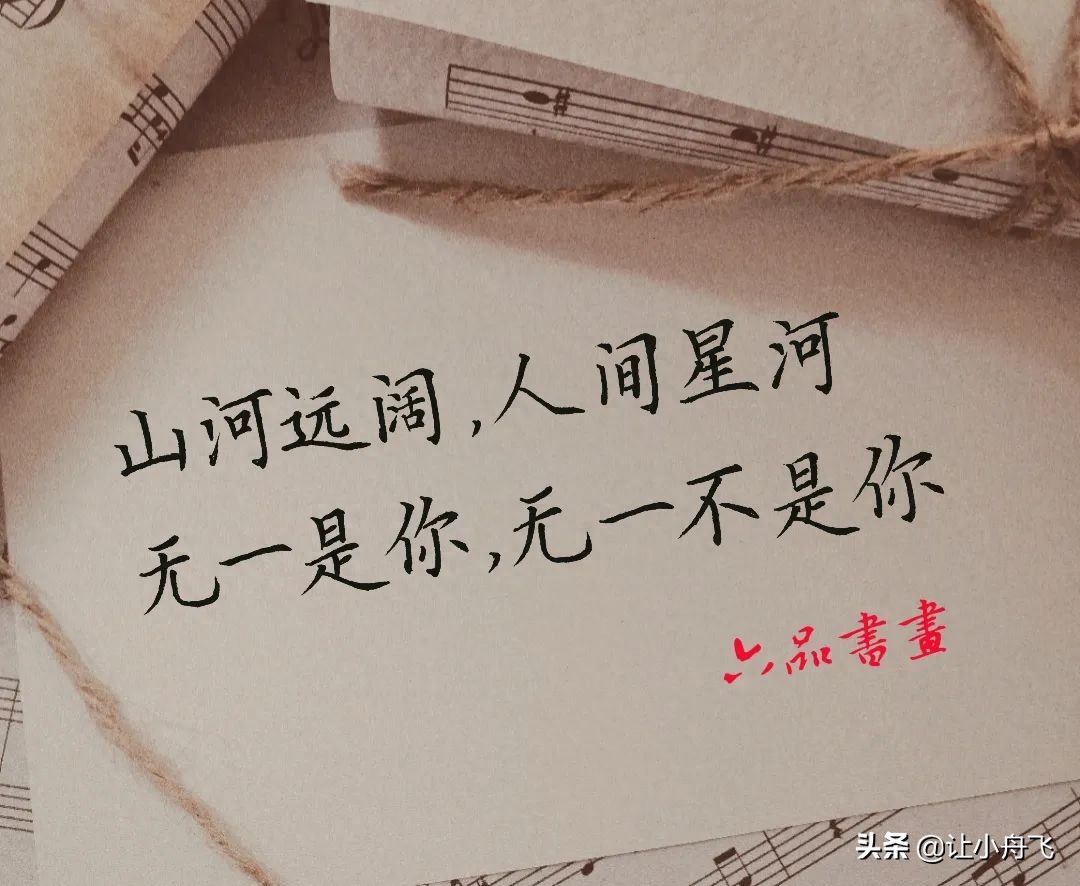 山河远阔,人间星河
无一是你,无一不是你
六品書畫
头条 @让小舟飞